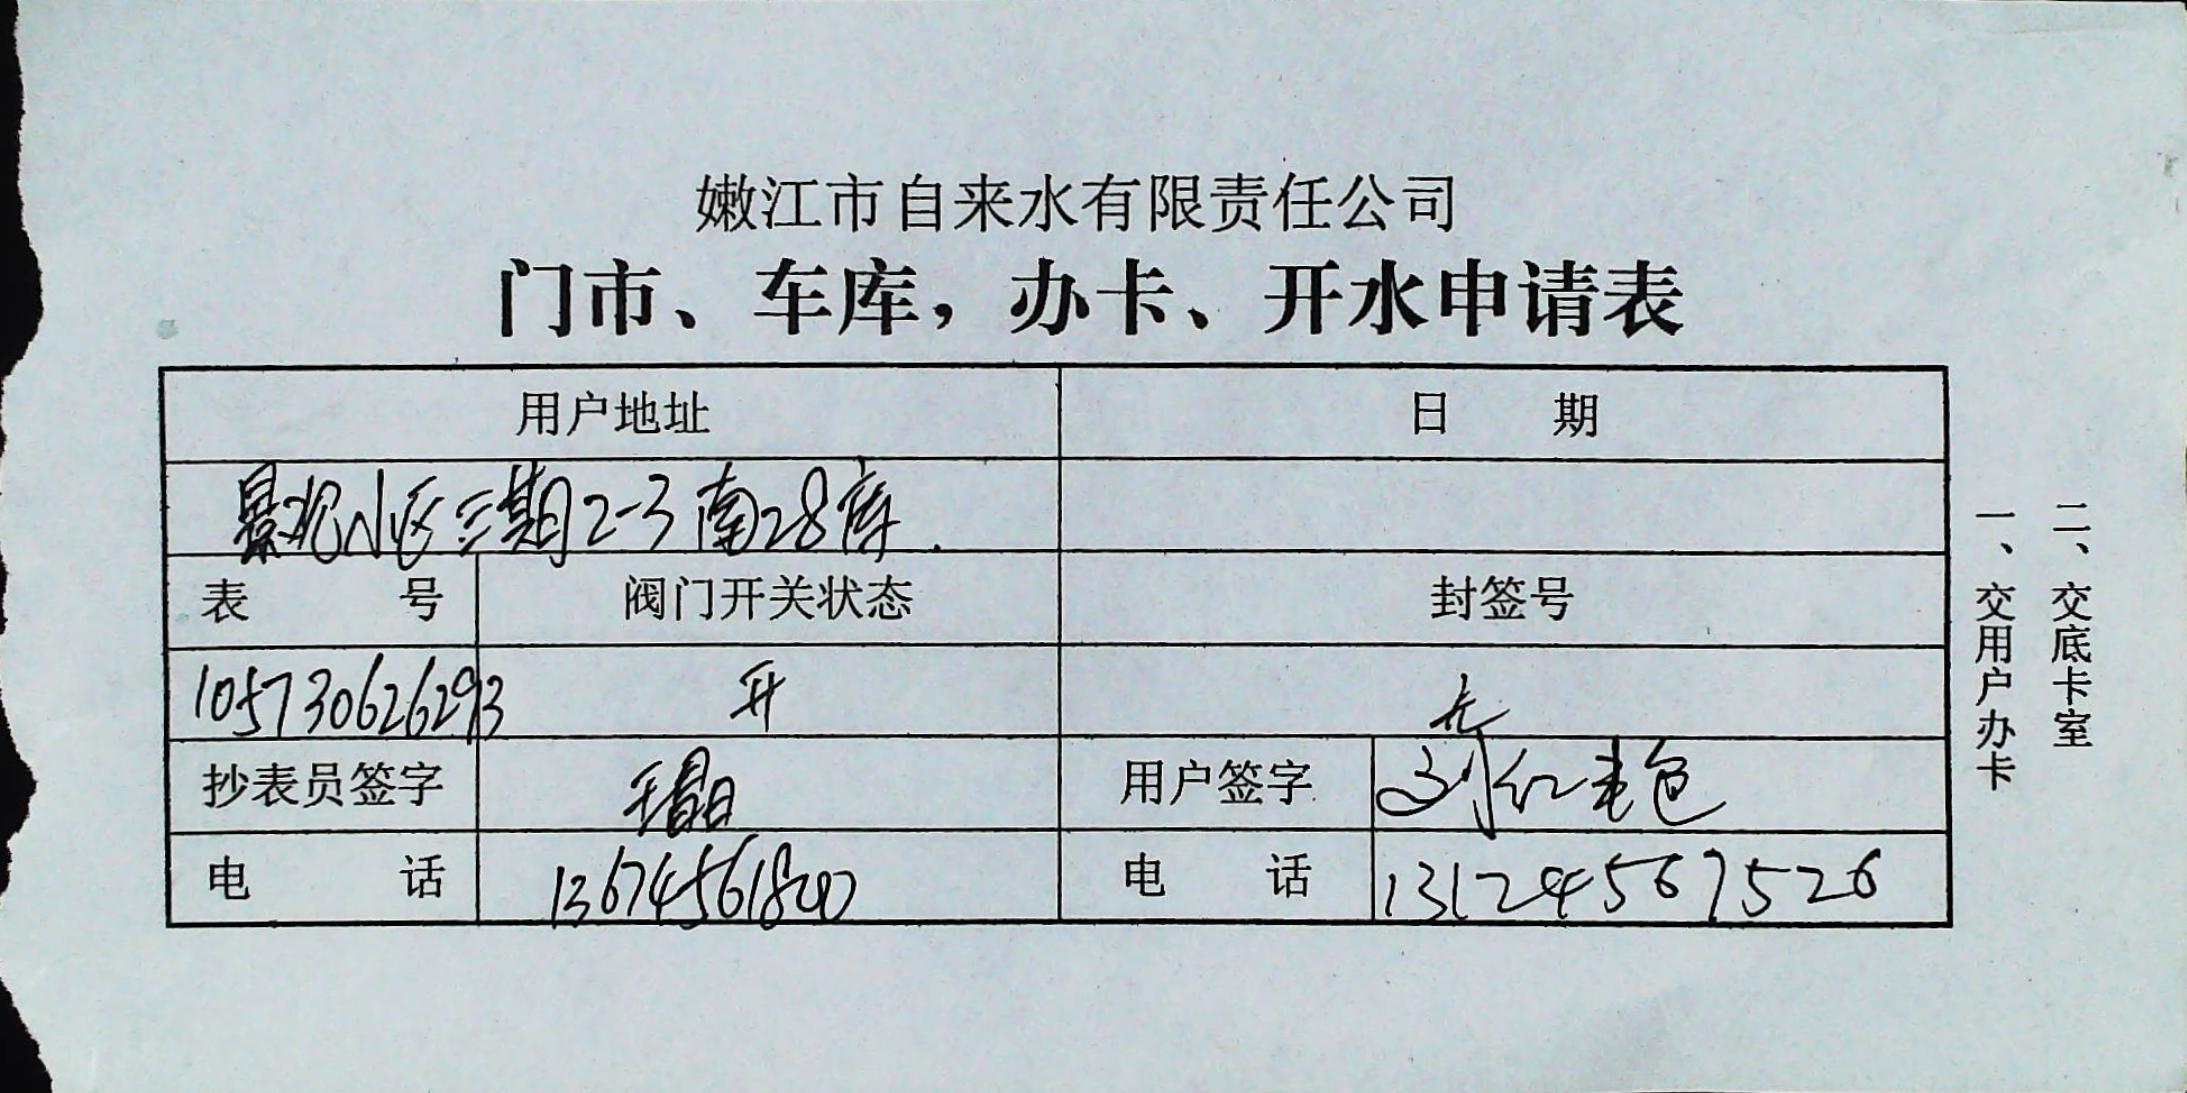 嫩江市自来水有限责任公司
门市、车库，办卡、开水申请表
用户地址 日 期
景观小区三期2-3南28库.
表 号 阀门开关状态 封签号
105730626293 开 无
抄表员签字 王晶 用户签字 刘红艳
电 话 13674561800 电 话 13124567526
一、交用户办卡
二、交底卡室